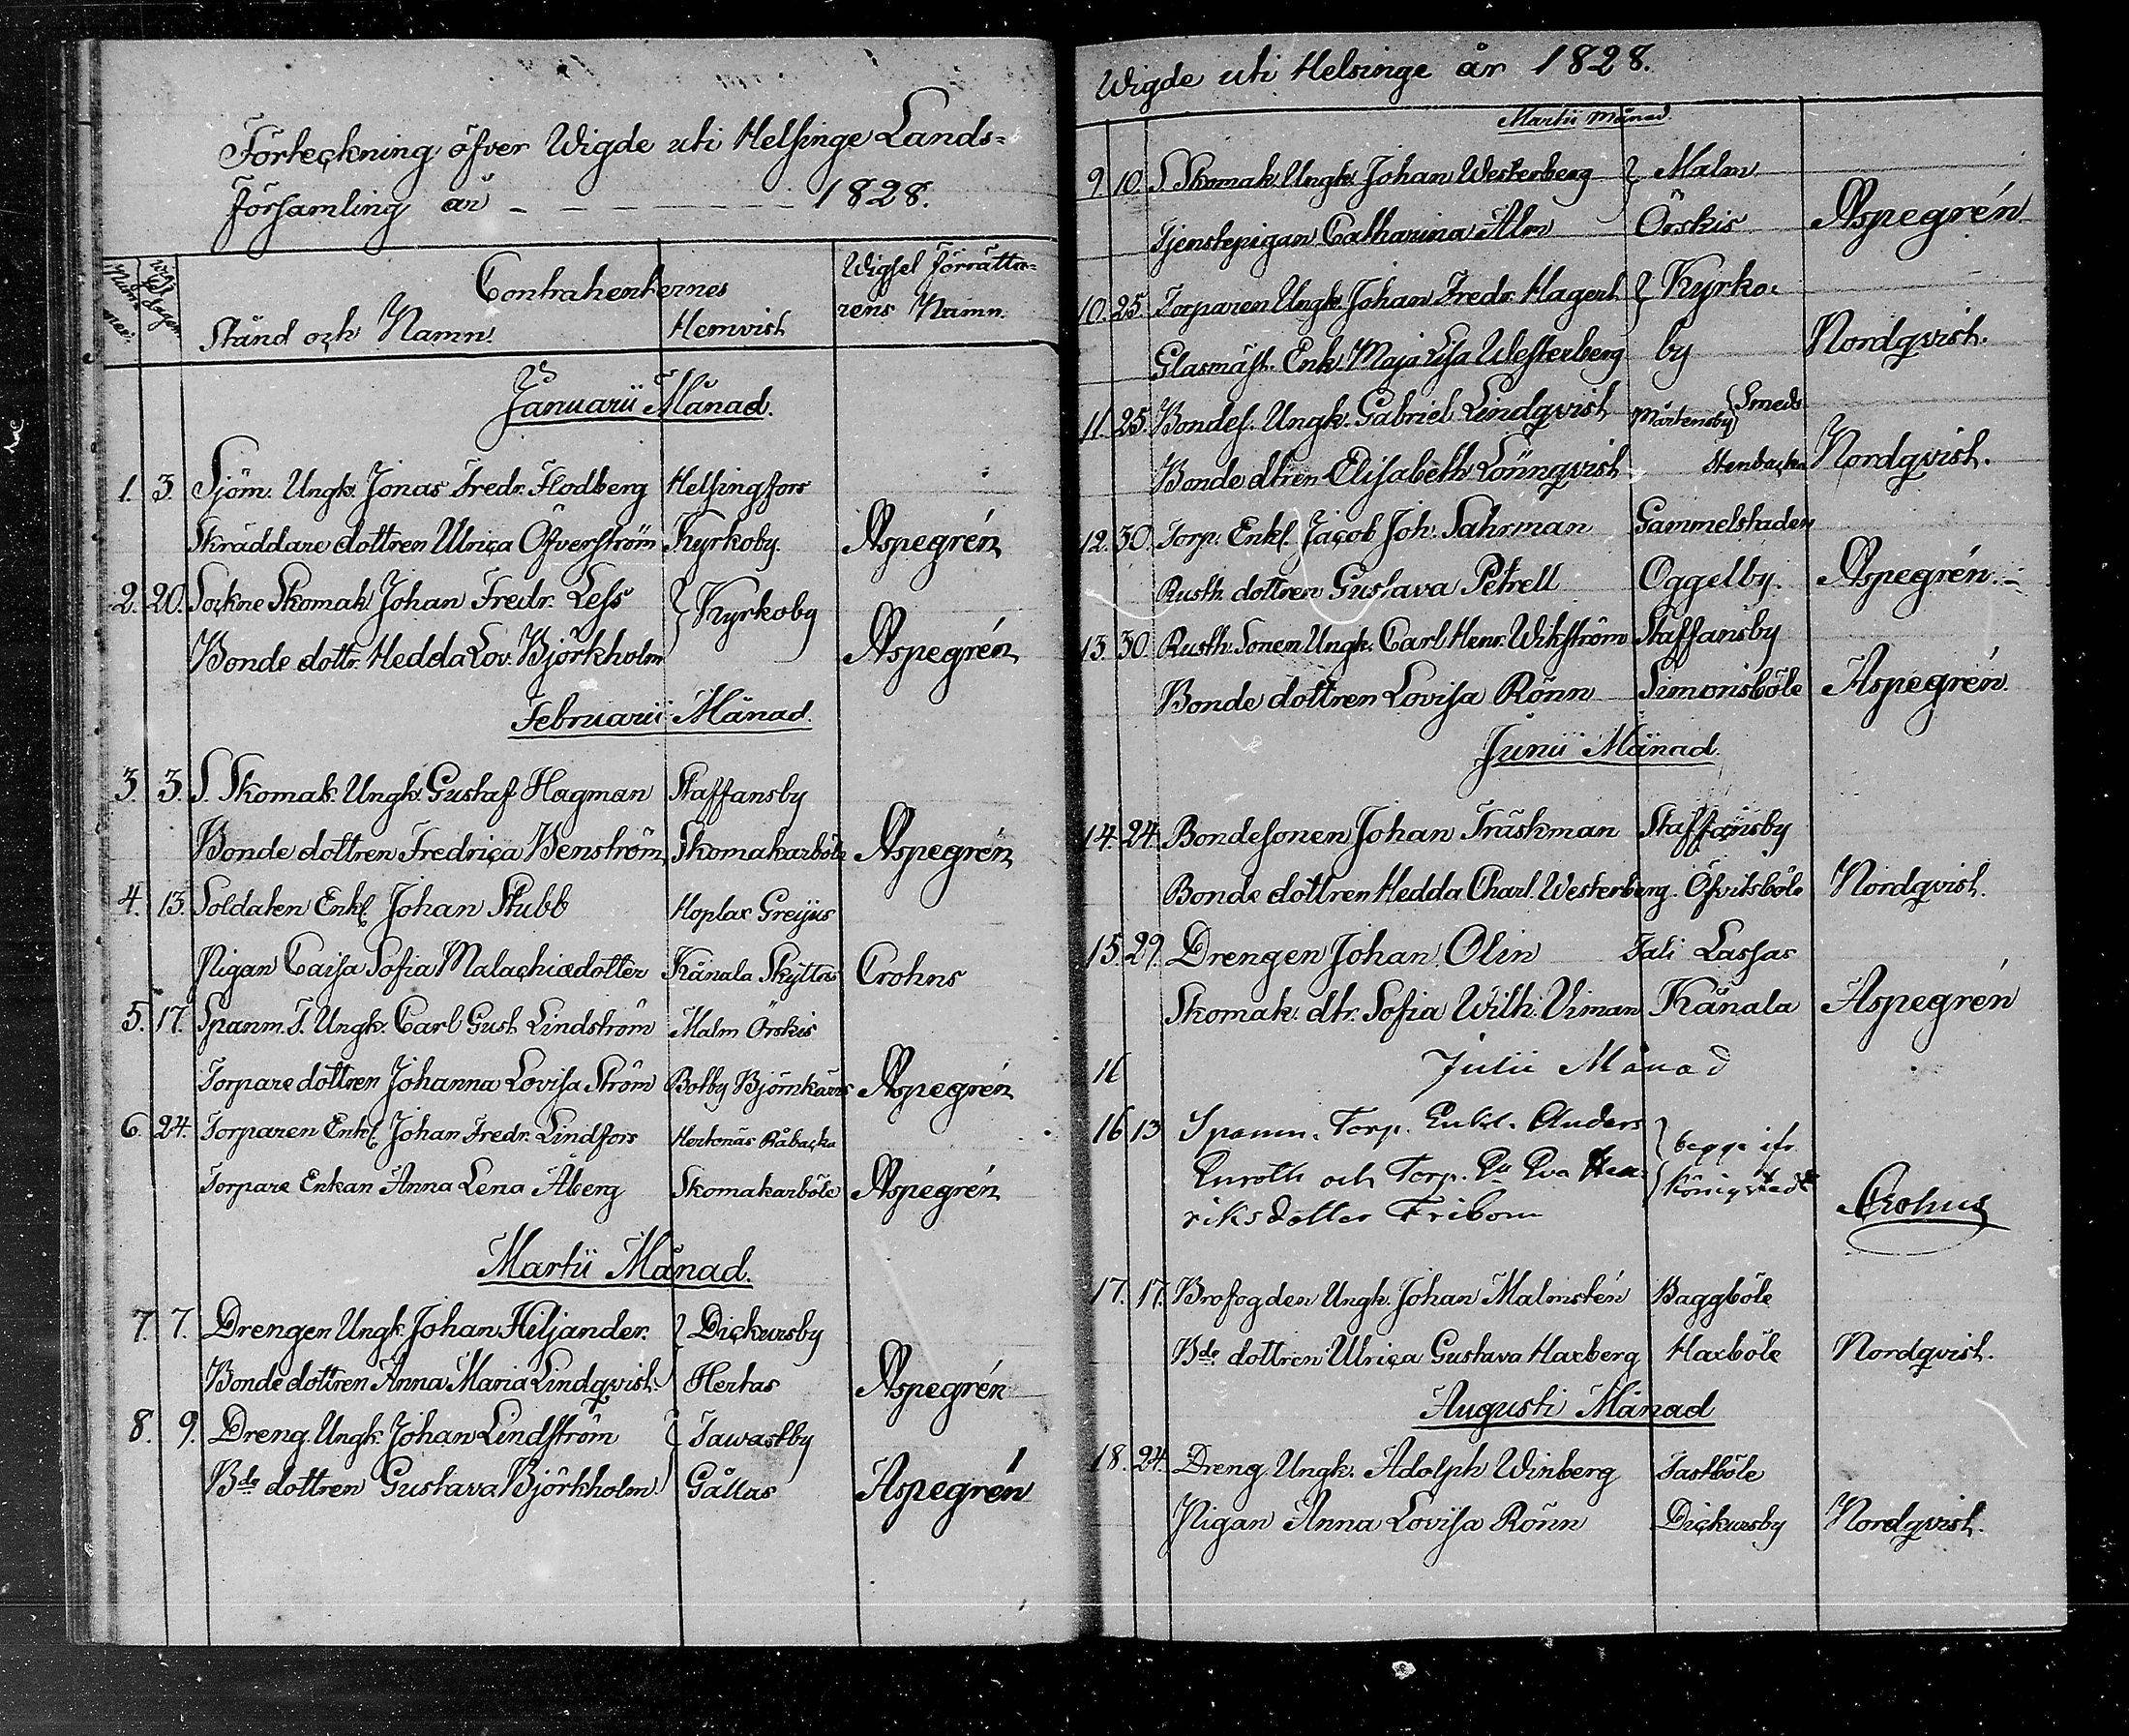 Förteckning öfver Wigde uti Helsinge Lands=
församling år - - - - - - 1828.
Num̅mer. Wigsel dagen. Contrahenternes Wigsel Förrätta=
Stånd och Namn. Hemvist rens Namn.
Januarii Månad.
1. 3. Sjöm. Ungk. Jonas Fredr. Flodberg Helsingfors
Skräddare dottren Ulrica Öfverström Kyrkoby. Aspegrén
2. 20. Sockne Skomak. Johan Fredr. Less } Kyrkoby
Bonde dottr. Hedda Lov. Björkholm Aspegrén
Februarii Månad.
3. 3. S. Skomak. Ungk. Gustaf Hagman Staffansby
Bonde dottren Fredrica Wenström Skomakarböle Aspegrén
4. 13. Soldaten Enkl. Johan Stubb Hoplax Greijus
Pigan Caisa Sofia Malachiædotter Kånala Skyttas Crohns
5. 17. Spanm. T. Ungk. Carl Gust. Lindström Malm Örskis
Torpare dottren Johanna Lovisa Ström Botby Björnkärrs Aspegrén
6. 24. Torparen Enkl. Johan Fredr. Lindfors Hertonäs Råbacka
Torpare Enkan Anna Lena Åberg Skomakarböle Aspegrén
Martii Månad.
7. 7. Drengen Ungk. Johan Hiljander. } Dickursby
Bonde dottren Anna Maria Lindqvist. Hertas Aspegrén
8. 9. Dreng. Ungk. Johan Lindström } Tawastby
Bde dottren Gustava Björkholm. Gållas Aspegrén
Wigde uti Helsinge år 1828.
Martii Månad.
9. 10. S Skomak. Ungk. Johan Westerberg } Malm
Tjenstepigan Catharina Alm Örskis Aspegrén
10. 25. Torparen Ungk. Johan Fredr. Hagert } Kyrko=
Glasmäst. Enk. Maja Lisa Westerberg by Nordqvist.
11. 25. Bondes. Ungk. Gabriel Lindqvist Mårtensby Smeds
Bonde dtren Elisabeth Lönnqvist Stenbacka Nordqvist.
12. 30. Torp. Enkl. Jacob Joh. Sahrman Gammelstaden
Rusth. dottren Gustava Petrell Oggelby. Aspegrén.
13. 30. Rusth. Sonen Ungk. Carl Henr. Wikström Staffansby
Bonde dottren Lovisa Rönn Simonsböle Aspegrén.
Junii Månad.
14. 24. Bondesonen Johan Träskman Staffansby
Bonde dottren Hedda Charl. Westerberg. Öfvitsböle Nordqvist.
15. 29. Drengen Johan Olin Tali Lassas
Skomak. dtr. Sofia Wilh. Viman Kånala Aspegrén
16 Julii Månad
16 13 Spanm. Torp. Enkl. Anders } begge ifr.
Enroth och Torp. En Eva Hen= Königstedt
riksdotter Fribom Crohns
17. 17. Brofogden Ungk. Johan Malmstén Baggböle
Bde dottren Ulrica Gustava Haxberg Haxböle Nordqvist.
Augusti Månad
18. 24. Dreng. Ungk. Adolph Winberg Tastböle
Pigan Anna Lovisa Rönn Dickursby Nordqvist.